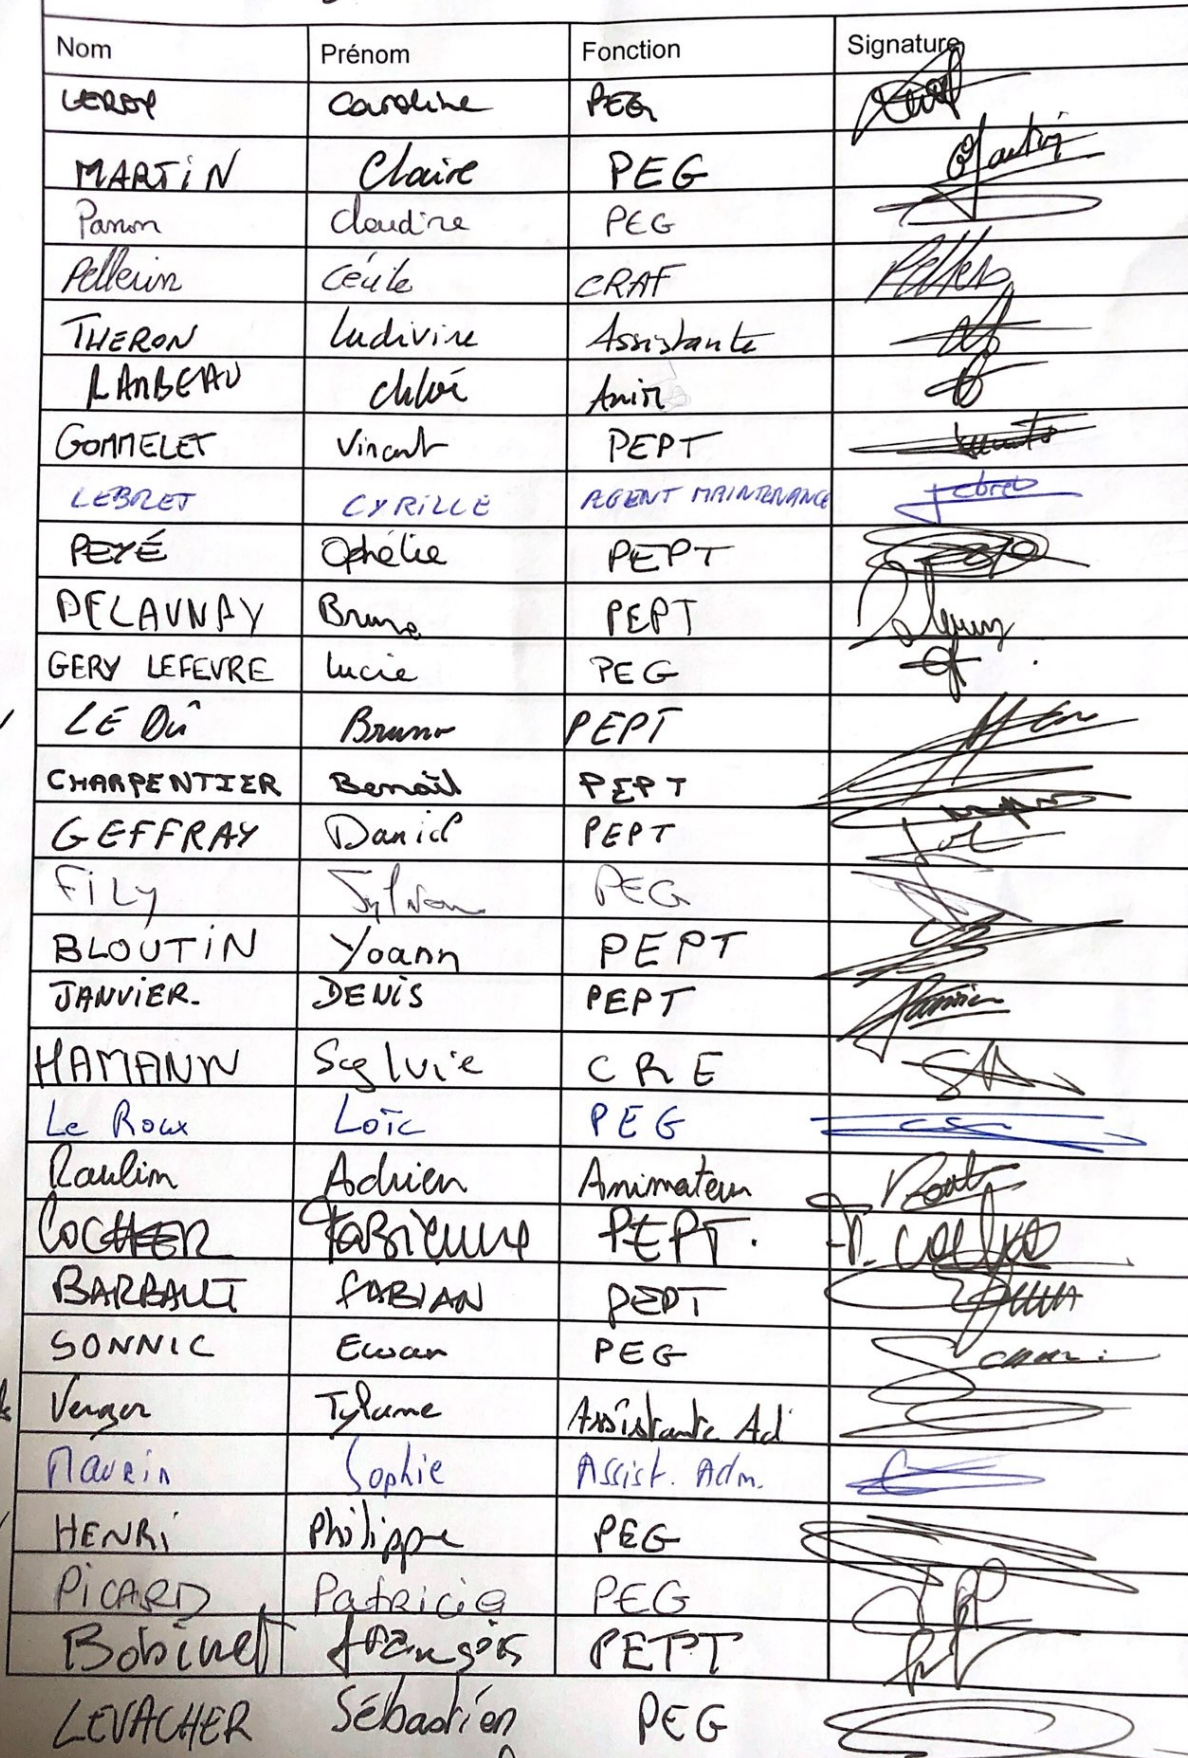 Nom Prénom Fonction Signature
LEROY Caroline PEG
MARTiN Claire PEG
Panon Claudine PEG
Pellerin Cécile CRAF
THERON Ludivine Assistante
RAMBEAU Chloé Anim
GOMMELET Vincent PEPT
LEBRET CYRILLE AGENT MAINTENANCE
PEYÉ Ophélie PEPT
DELAUNAY Bruno PEPT
GERY LEFEVRE Lucie PEG
LE Dû Bruno PEPT
CHARPENTIER Benoît PEPT
GEFFRAY Daniel PEPT
FiLy Sylvain PEG
BLOUTiN Yoann PEPT
JANVIER. DENIS PEPT
HAMANN Sylvie CRE
Le Roux Loïc PEG
Raulin Adrien Animateur
COCHER Fabienne PEPT.
BARBAULT FABIAN PEPT
SONNIC Ewan PEG
Verger Assistante Ad
Maurin Sophie Assist. Adm.
HENRi Philippe PEG
PiCARD Patricia PEG
Bobinet françois PEPT
LEVACHER Sébastien PEG